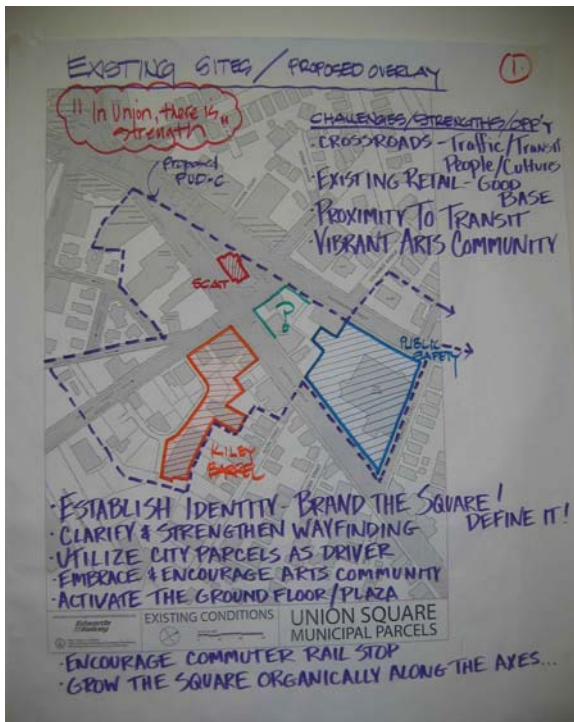 EXISTING SITES / PROPOSED OVERLAY
1.
"In Union, there is
strength"
CHALLENGES/STRENGTHS/OPP'Y
· CROSSROADS - Traffic/Transit
People/Cultures
· EXISTING RETAIL - GOOD
BASE
· PROXIMITY TO TRANSIT
· VIBRANT ARTS COMMUNITY
Proposed
PUD-C
SCAT
PUBLIC
SAFETY
KILEY
BARREL
· ESTABLISH IDENTITY - BRAND THE SQUARE!
DEFINE IT!
· CLARIFY & STRENGTHEN WAYFINDING
· UTILIZE CITY PARCELS AS DRIVER
· EMBRACE & ENCOURAGE ARTS COMMUNITY
· ACTIVATE THE GROUND FLOOR/PLAZA
Edwards
EXISTING CONDITIONS
UNION SQUARE
MUNICIPAL PARCELS
· ENCOURAGE COMMUTER RAIL STOP
· GROW THE SQUARE ORGANICALLY ALONG THE AXES...